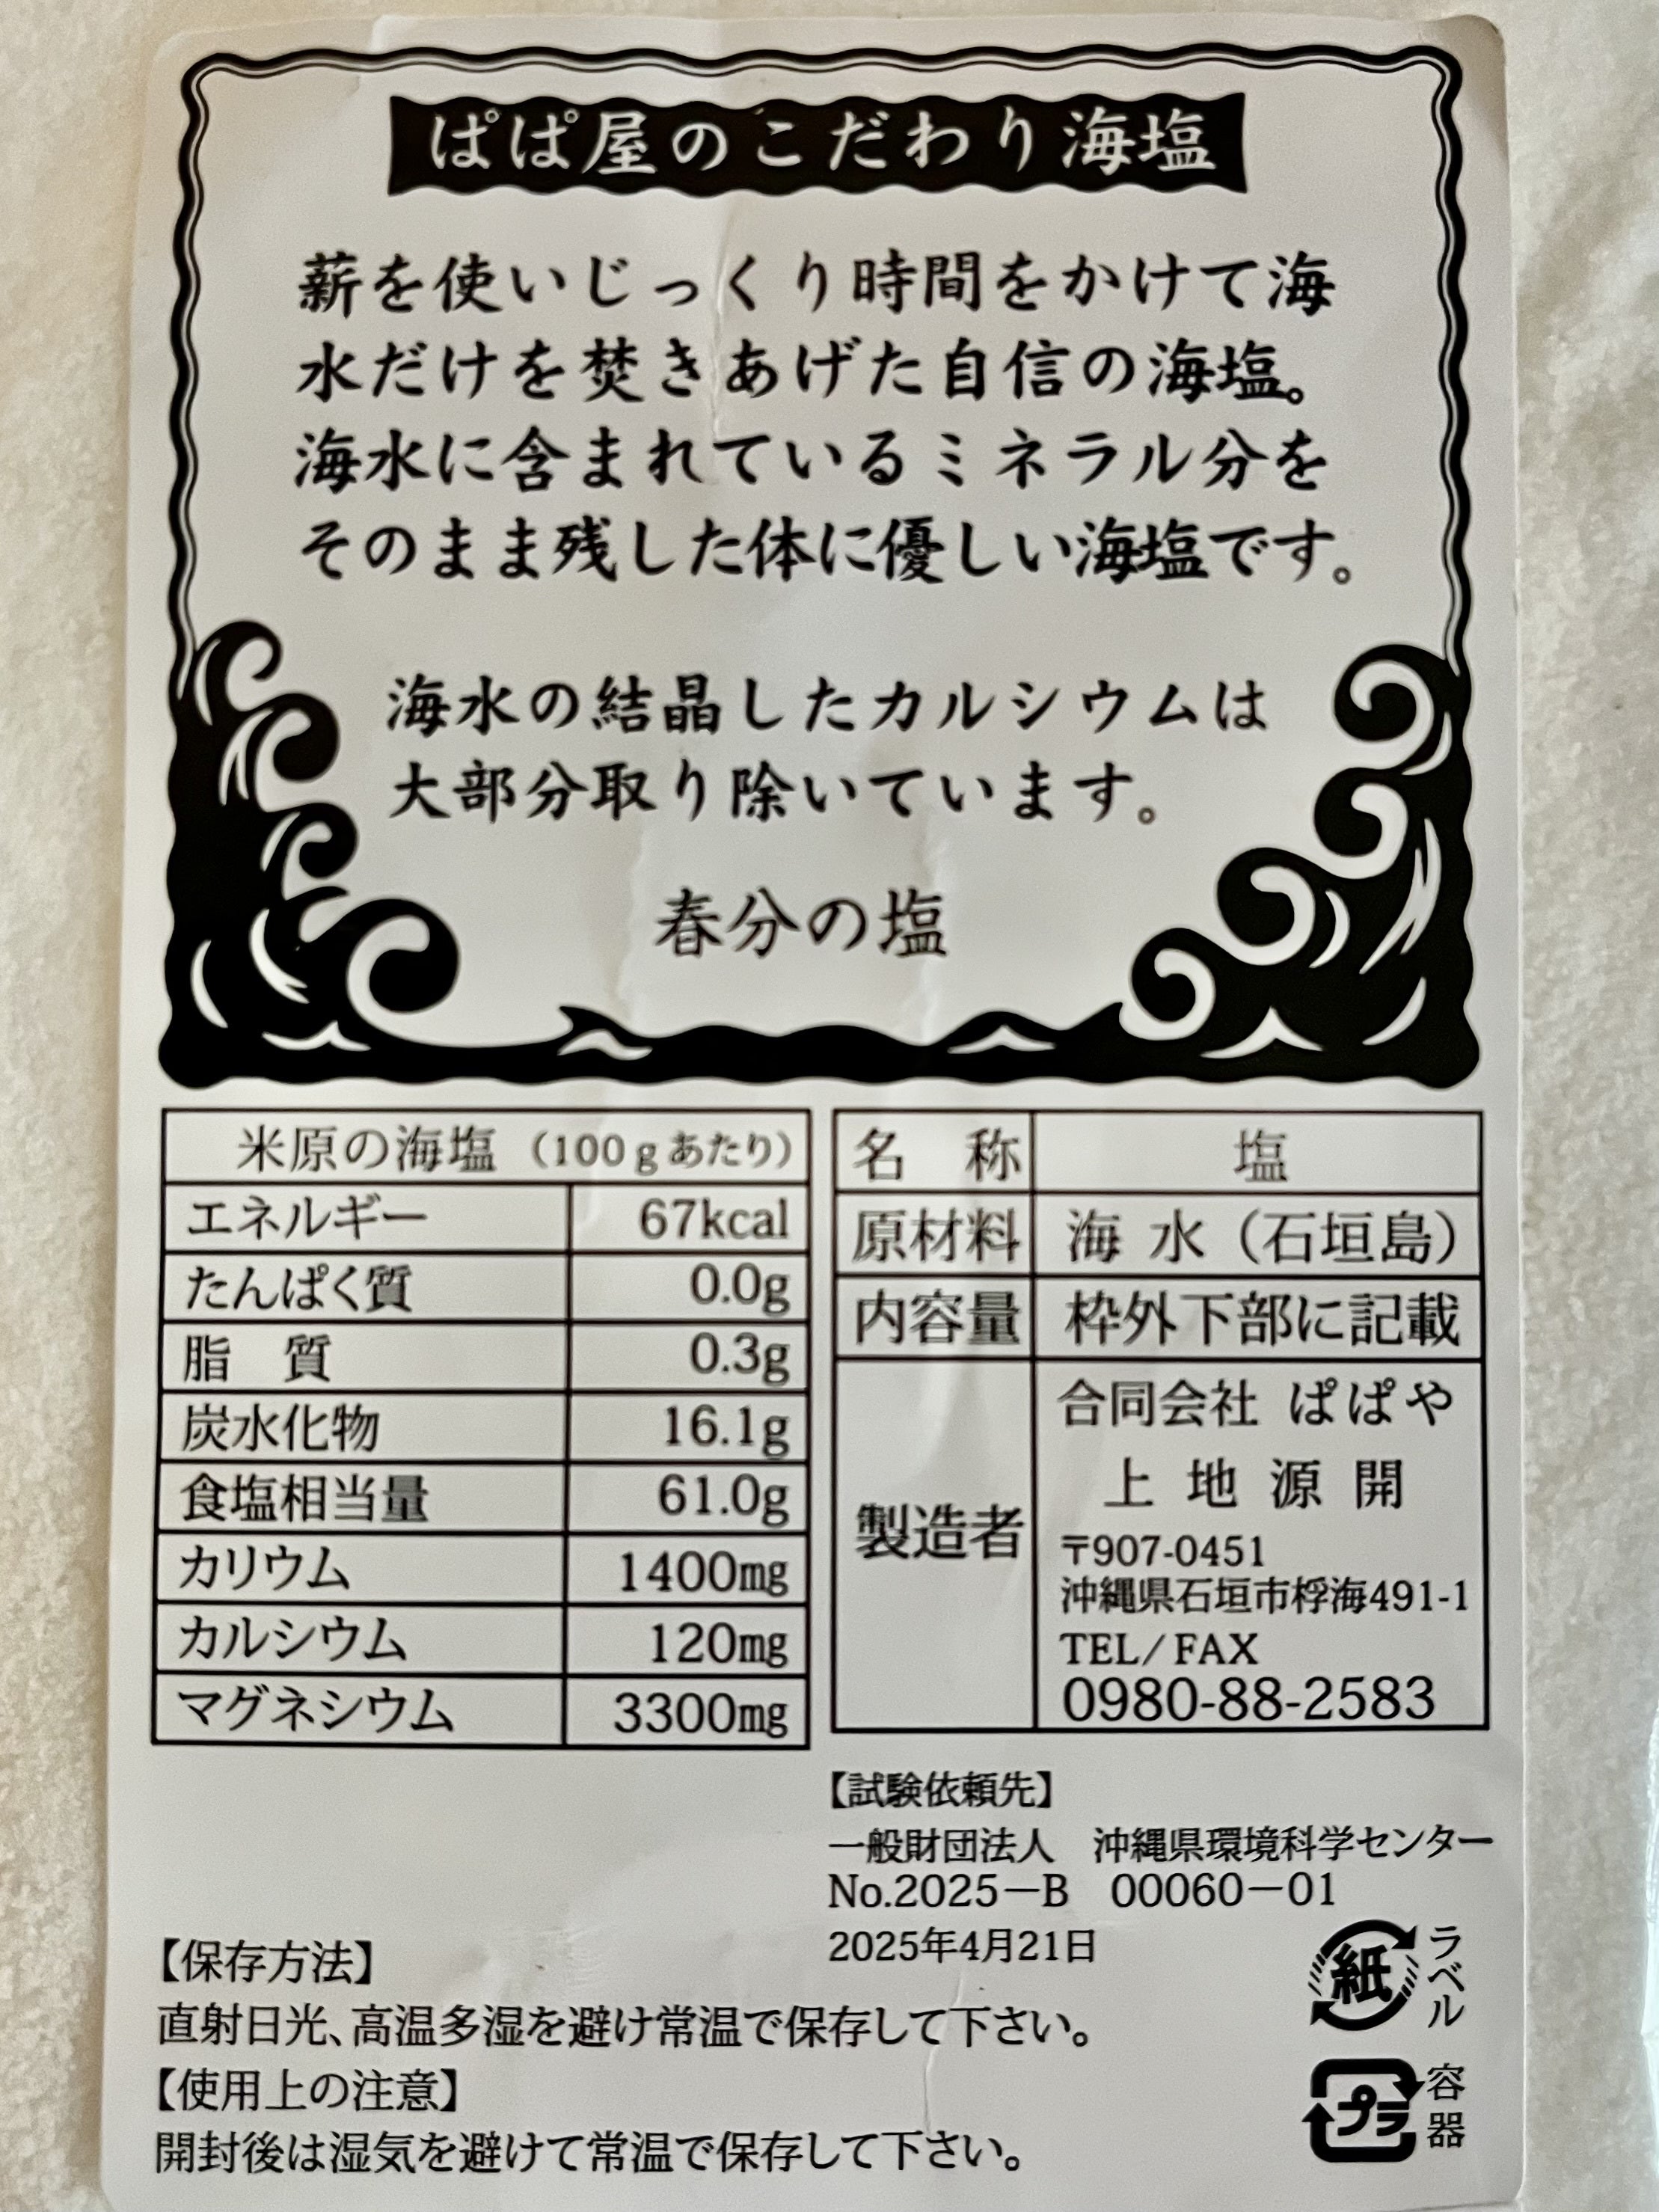 ぱぱ屋のこだわり海塩
薪を使いじっくり時間をかけて海
水だけを焚きあげた自信の海塩。
海水に含まれているミネラル分を
そのまま残した体に優しい海塩です。
海水の結晶したカルシウムは
大部分取り除いています。
春分の塩
米原の海塩（100gあたり）
エネルギー 67kcal
たんぱく質 0.0g
脂　質 0.3g
炭水化物 16.1g
食塩相当量 61.0g
カリウム 1400mg
カルシウム 120mg
マグネシウム 3300mg
名　称 塩
原材料 海 水（石垣島）
内容量 枠外下部に記載
製造者
合同会社 ぱぱや
上 地 源 開
〒907-0451
沖縄県石垣市桴海491-1
TEL/FAX
0980-88-2583
【試験依頼先】
一般財団法人　沖縄県環境科学センター
No.2025－B　00060－01
2025年4月21日
【保存方法】
直射日光、高温多湿を避け常温で保存して下さい。
【使用上の注意】
開封後は湿気を避けて常温で保存して下さい。
紙 ラベル
プラ 容器